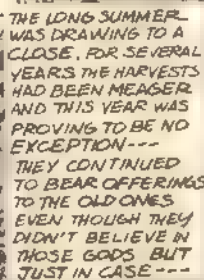 THE LONG SUMMER
WAS DRAWING TO A
CLOSE, FOR SEVERAL
YEARS THE HARVESTS
HAD BEEN MEAGER
AND THIS YEAR WAS
PROVING TO BE NO
EXCEPTION---
THEY CONTINUED
TO BEAR OFFERINGS
TO THE OLD ONES
EVEN THOUGH THEY
DIDN'T BELIEVE IN
THOSE GODS BUT
JUST IN CASE---